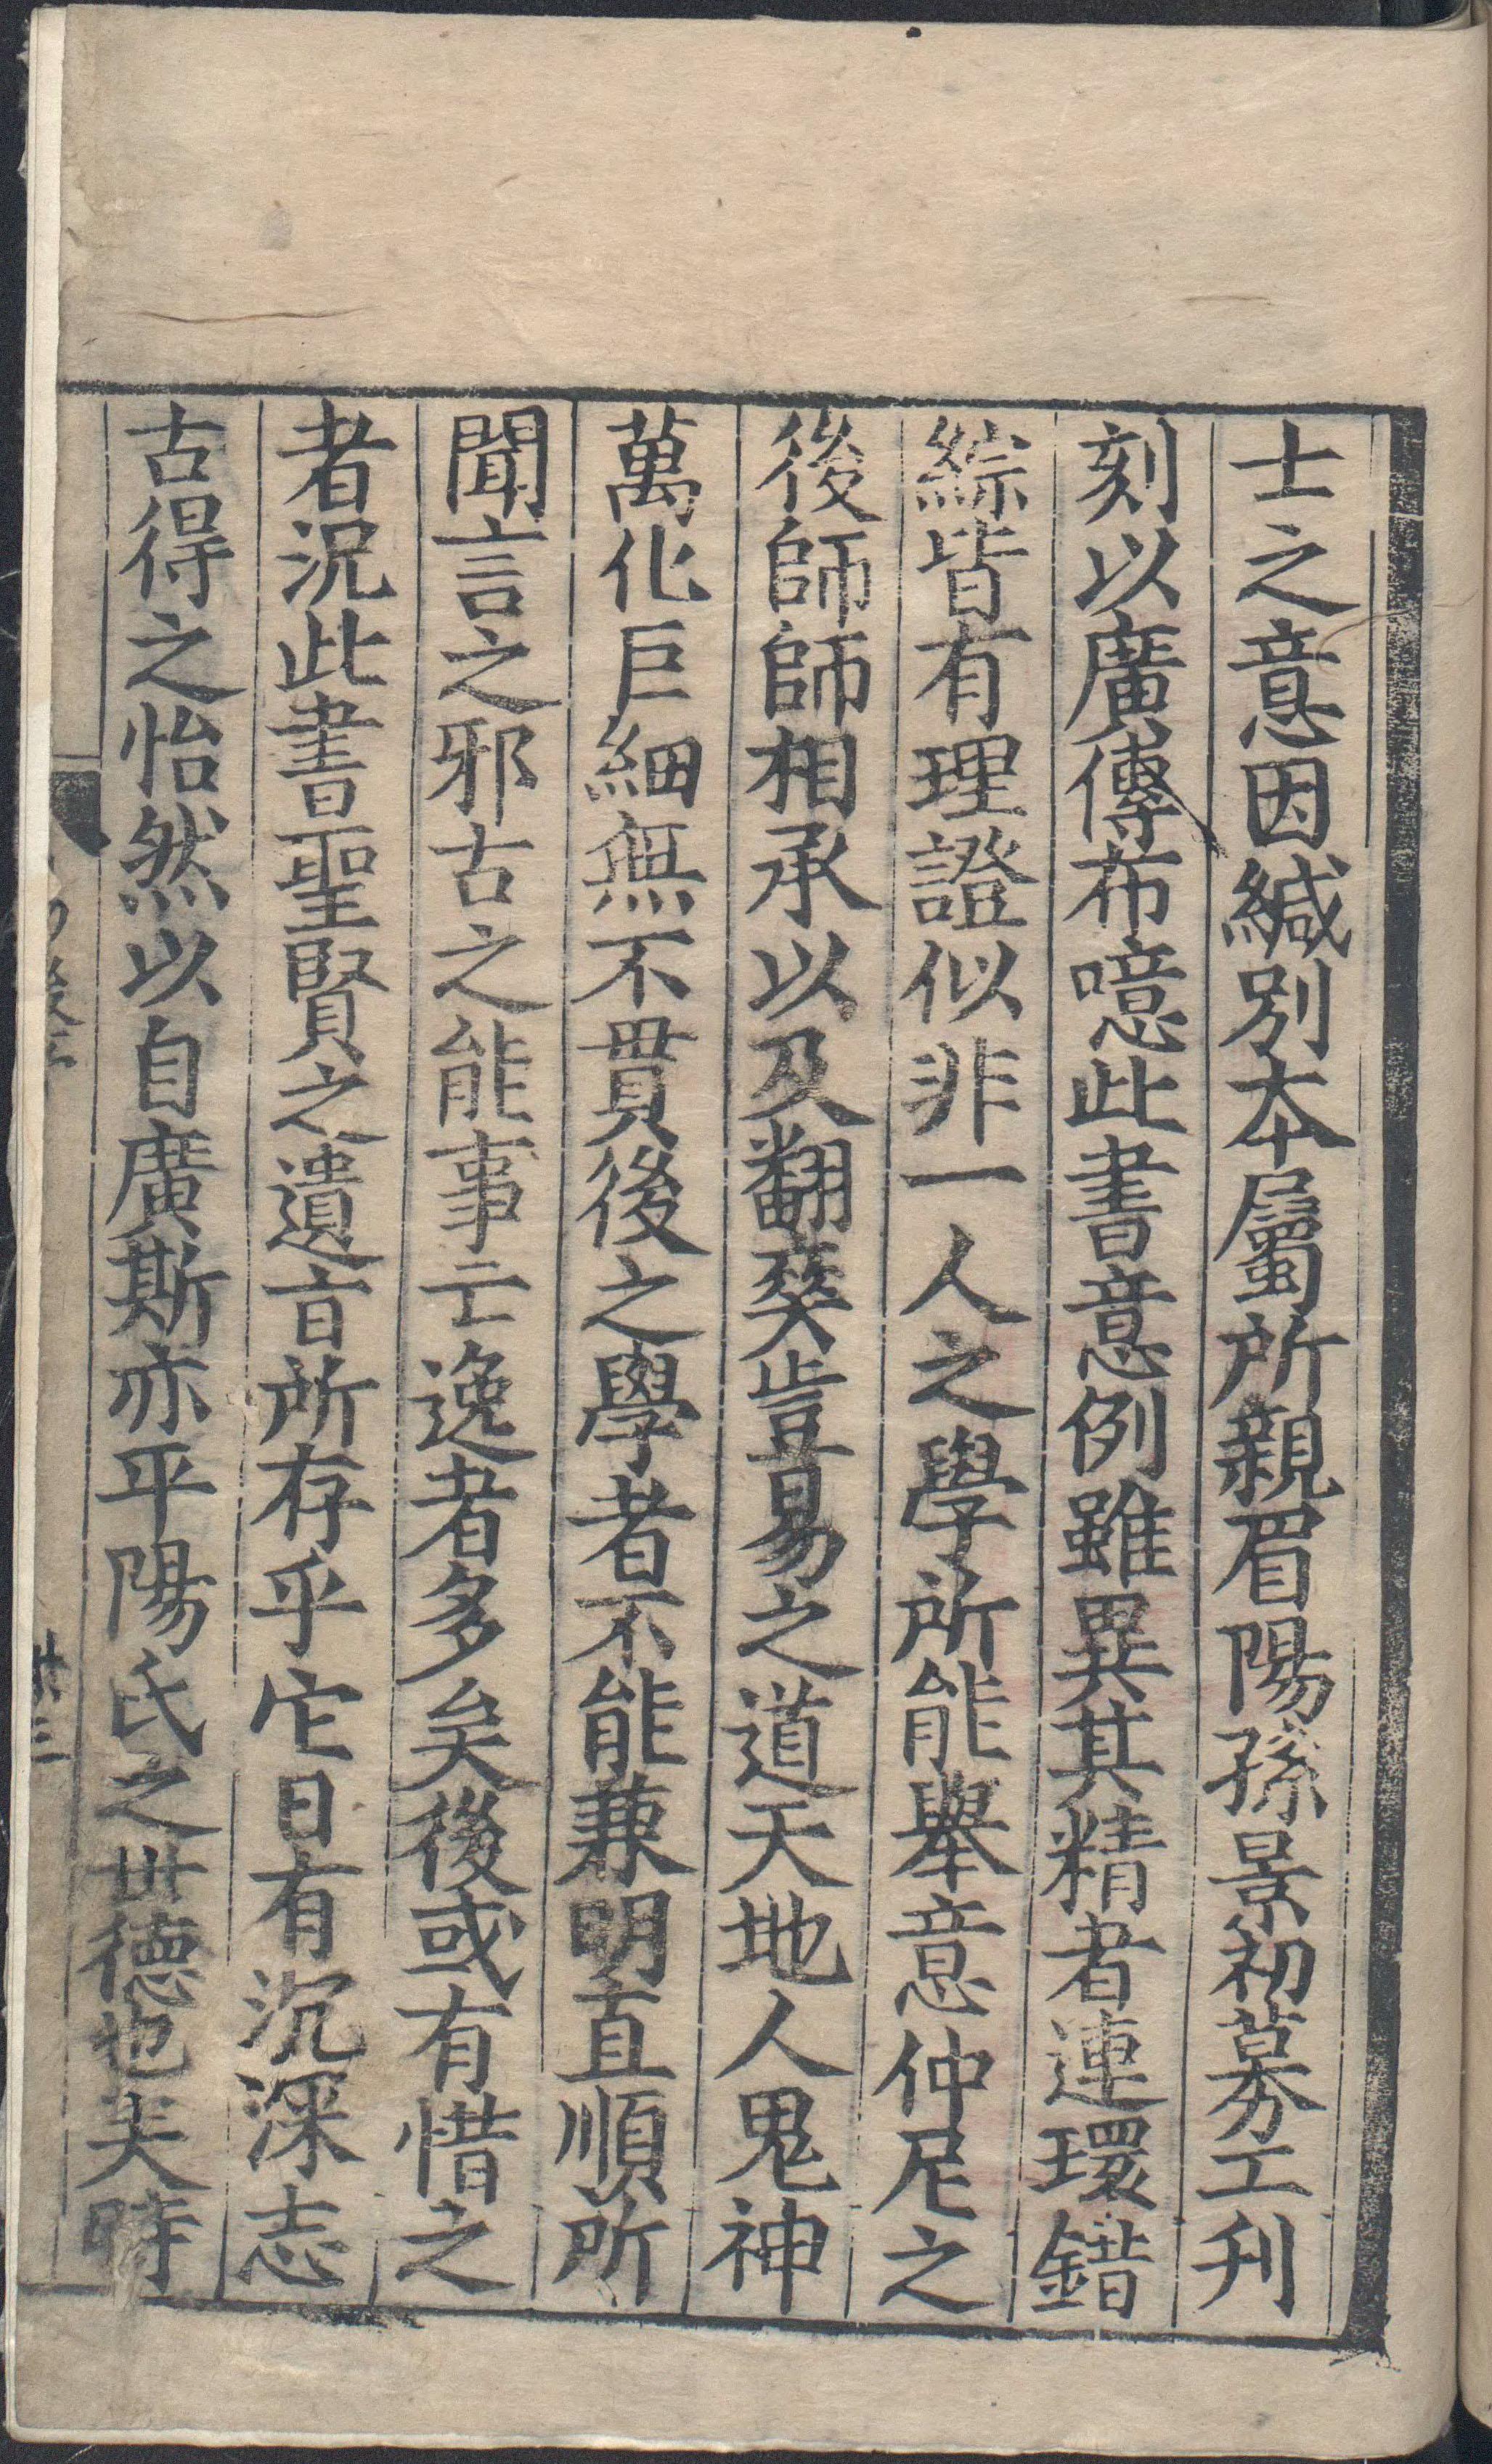 士之意因緘別本屬所親眉陽孫景初募工刋
刻以廣傳布噫此書意例雖異其精者連環錯
綜皆有理證似非一人之學所能舉意仲尼之
後師師相承以及翻爻豈易之道天地人鬼神
萬化巨細無不貫後之學者不能兼明直順所
聞言之邪古之能事亡逸者多矣後或有惜之
者況此書聖賢之遺言所存乎它日有沉深志
古得之怡然以自廣斯亦平陽氏之世德也夫時